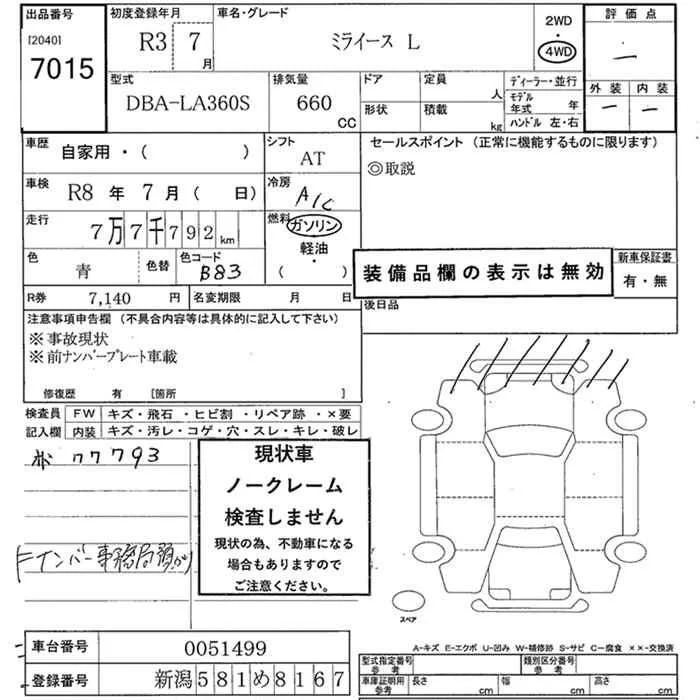 出品番号
[2040]
7015
初度登録年月
R3 7 月
車名・グレード
ミライース L
2WD
・
4WD
評価点
―
外装 内装
― ―
型式
DBA-LA360S
排気量
660 CC
ドア
定員 人
形状
積載 kg
ディーラー・並行
モデル年式 年
ハンドル 左・右
車歴
自家用・( )
シフト
AT
セールスポイント (正常に機能するものに限ります)
◎取説
車検
R8 年 7 月 ( 日)
冷房
A/C
走行
7万7千792km
燃料
ガソリン
・
軽油
・
( )
色
青
色替
色コード
B83
装備品欄の表示は無効
新車保証書
有・無
R券 7,140 円
名変期限 月 日
後日品
注意事項申告欄 (不具合内容等は具体的に記入して下さい)
※事故現状
※前ナンバープレート車載
修復歴 有 [箇所 ]
検査員記入欄
FW キズ・飛石・ヒビ割・リペア跡・×要
内装 キズ・汚レ・コゲ・穴・スレ・キレ・破レ
77793
現状車
ノークレーム
検査しません
現状の為、不動車になる
場合もありますので
ご注意ください。
Fナンバー事務局預かり
スペア
車台番号 0051499
登録番号 新潟581め8167
A-キズ E-エクボ U-凹み W-補修跡 S-サビ C-腐食 ××-交換済
型式指定番号 参考
類別区分番号 参考
車庫証明用 参考
長さ cm
幅 cm
高さ cm